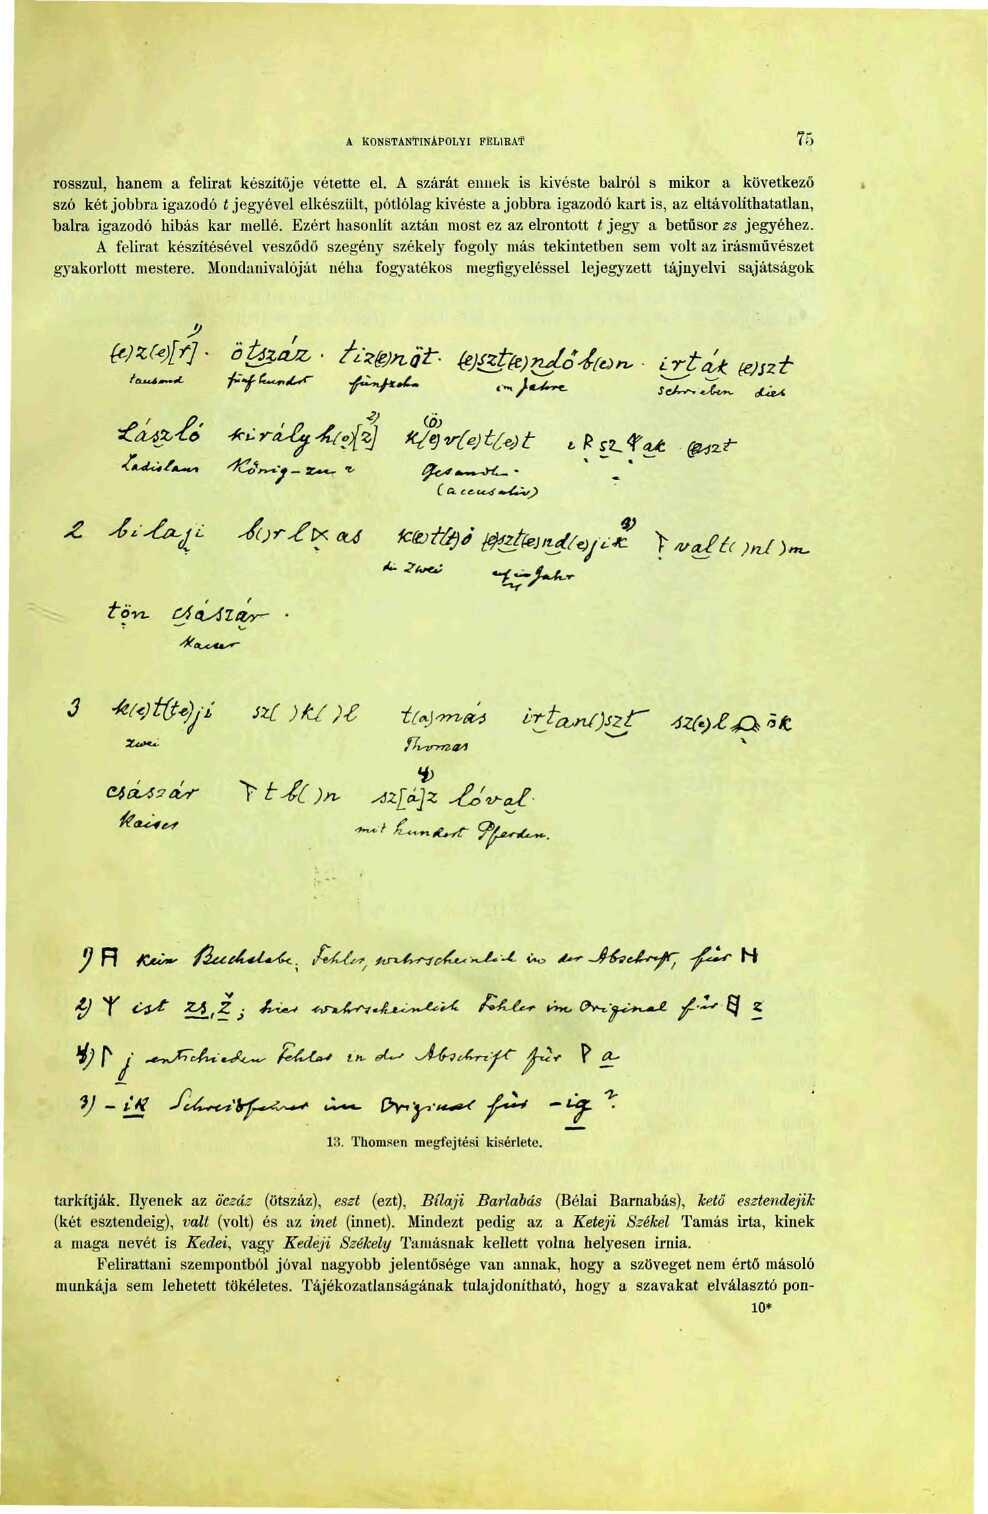 A KONSTANTINÁPOLYI FELIRAT 75
rosszul, hanem a felirat készítője vétette el. A szárát ennek is kivéste balról s mikor a következő
szó két jobbra igazodó t jegyével elkészült, pótlólag kivéste a jobbra igazodó kart is, az eltávolíthatatlan,
balra igazodó hibás kar mellé. Ezért hasonlít aztán most ez az elrontott t jegy a betűsor zs jegyéhez.
A felirat készítésével vesződő szegény székely fogoly más tekintetben sem volt az irásművészet
gyakorlott mestere. Mondanivalóját néha fogyatékos megfigyeléssel lejegyzett tájnyelvi sajátságok
(e)z(e)[r] 1) · ötszáz · tiz(e)nöt · (e)szt(e)ndőb(e)n · irták (e)szt
tausend fünfhundert fünfzehn im Jahre schrieben dies
László király h(o)[z] 2) k(ö)v(e)t(e)t (e)szt
Ladislaus König – zu ? Gesandte
(accusativ)
2 bilaji b()rl as k(e)t(t)ő (e)szt(e)nd(e)jik 3) valt( )n( )m
die Zwei auf ein Jahr
tön császár ·
Kaiser
3 k(e)t(t(e)ji sz( )k( )l t(a)más irtan( )szt sz(e)l ök
zwei Thomas
császár t b( )n sz[á]z 4) lóval
Kaiser mit hundert Pferden.
1) kein Buchstabe; Fehler, wahrscheinlich in der Abschrift, für
2) ist zs, ž; hier wahrscheinlich Fehler im Original für z
4) j entschieden Fehler in der Abschrift für a
3) – ik Schreibfehler im Original für – ig ?
13. Thomsen megfejtési kisérlete.
tarkítják. Ilyenek az öczáz (ötszáz), eszt (ezt), Bílaji Barlabás (Bélai Barnabás), kető esztendejik
(két esztendeig), valt (volt) és az inet (innet). Mindezt pedig az a Keteji Székel Tamás irta, kinek
a maga nevét is Kedei, vagy Kedeji Székely Tamásnak kellett volna helyesen irnia.
Felirattani szempontból jóval nagyobb jelentősége van annak, hogy a szöveget nem értő másoló
munkája sem lehetett tökéletes. Tájékozatlanságának tulajdonítható, hogy a szavakat elválasztó pon-
10*